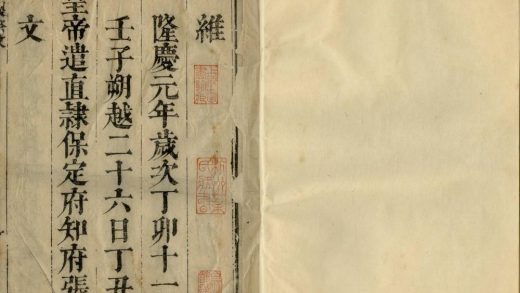 維
隆慶元年歲次丁卯十一
壬子朔越二十六日丁丑
皇帝遣直隸保定府知府張
文